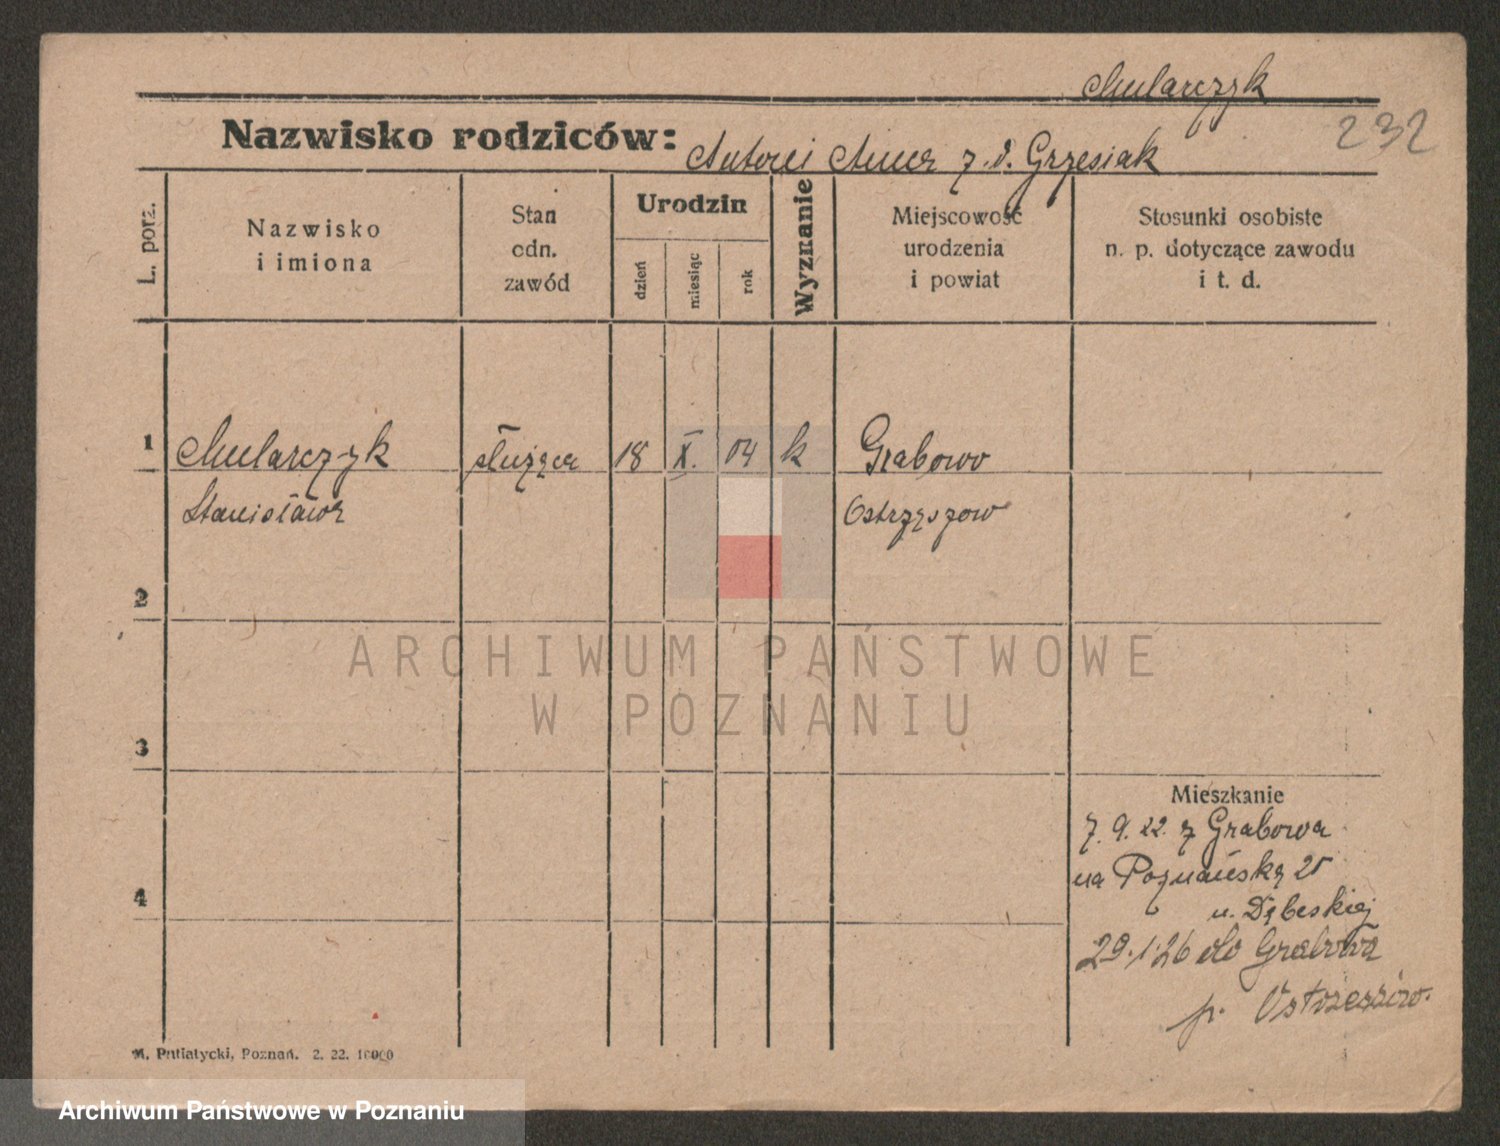 Mularczyk
232
Nazwisko rodziców: Antoni Anna z d. Grzesiak
L. porz.
Nazwisko
i imiona
Stan
odn.
zawód
Urodzin
dzień
miesiąc
rok
Wyznanie
Miejscowość
urodzenia
i powiat
Stosunki osobiste
n. p. dotyczące zawodu
i t. d.
1 Mularczyk służąca 18 X. 04 k Grabowo
Stanisława Ostrzęszow
2
3
4
Mieszkanie
7. 9. 22. z Grabowa
na Poznańską 25
u. Dębeskiej
29.1.26 do Grabowa
p. Ostrzeszów.
M. Putiatycki, Poznań. 2. 22. 10000
ARCHIWUM PAŃSTWOWE
W POZNANIU
Archiwum Państwowe w Poznaniu